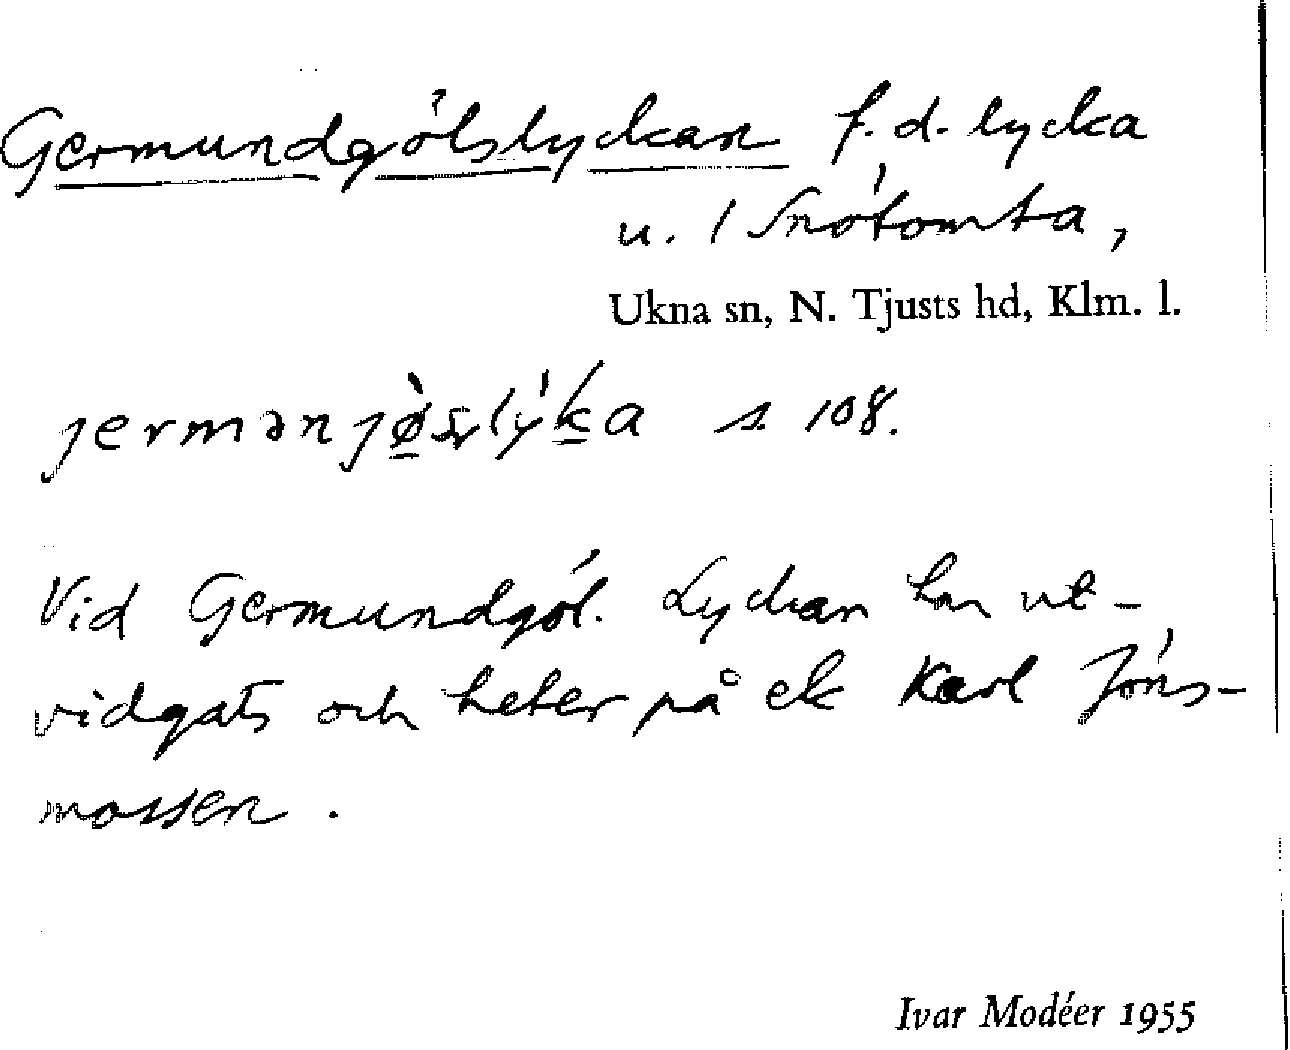 Germundgölslyckan f.d. lycka
u. 1 Snötomta,
Ukna sn, N. Tjusts hd, Klm. l.
s. 108.
Vid Germundgöl. Lyckan har ut-
vidgats och heter på ek Karl Jóns-
mossen.
Ivar Modéer 1955